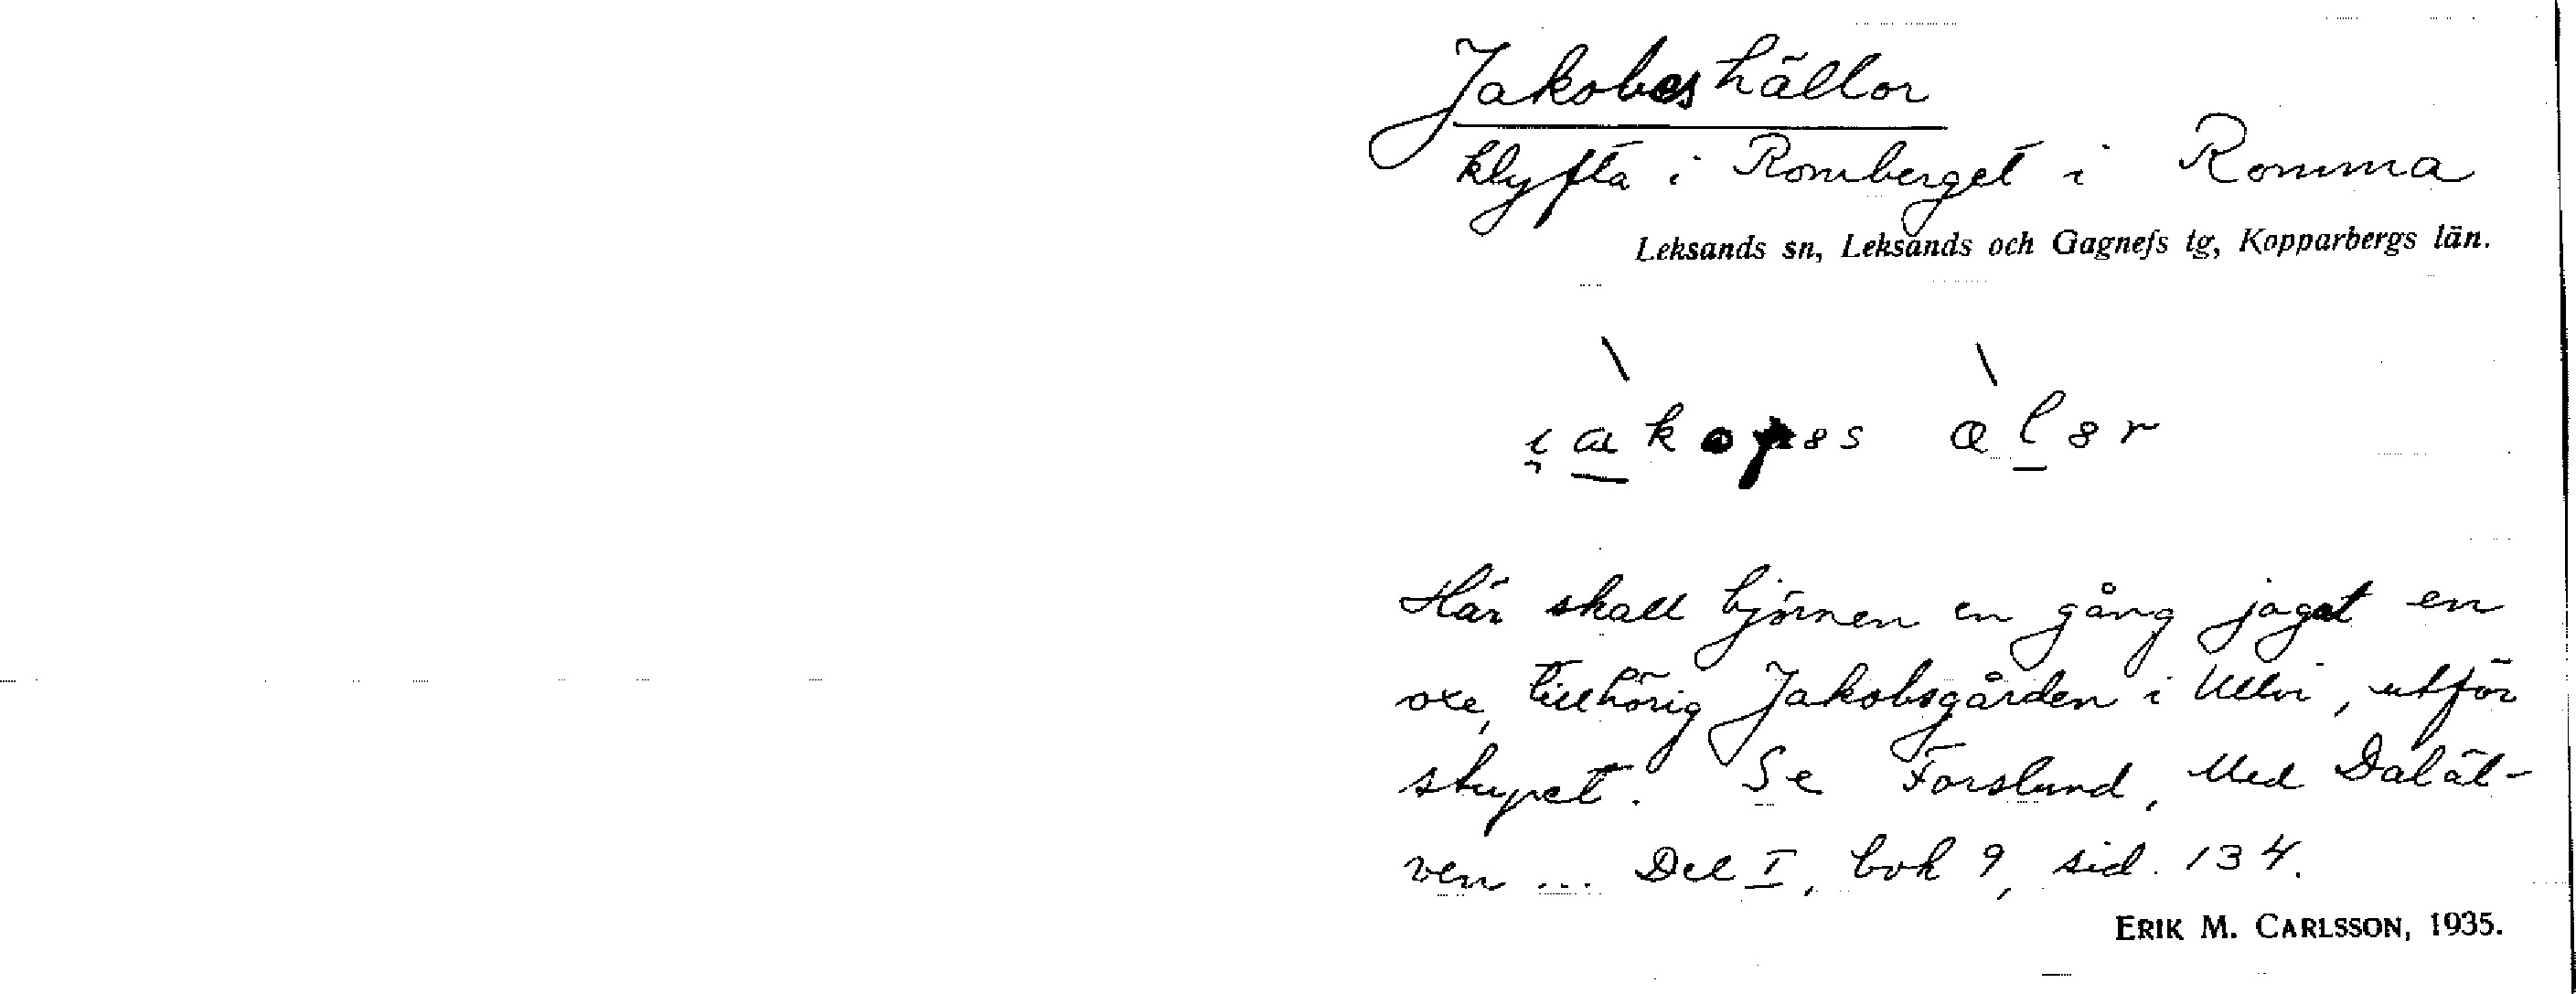 Jakobeshällor
klyfta i Romberget i Romma
Leksands sn, Leksands och Gagnefs tg, Kopparbergs län.
Här skall björnen en gång jagat en
oxe, tillhörig Jakobsgården i Ullvi, utför
stupet. Se Forslund, Med Daläl-
ven ... Del I, bok 9, sid. 134.
ERIK M. CARLSSON, 1935.